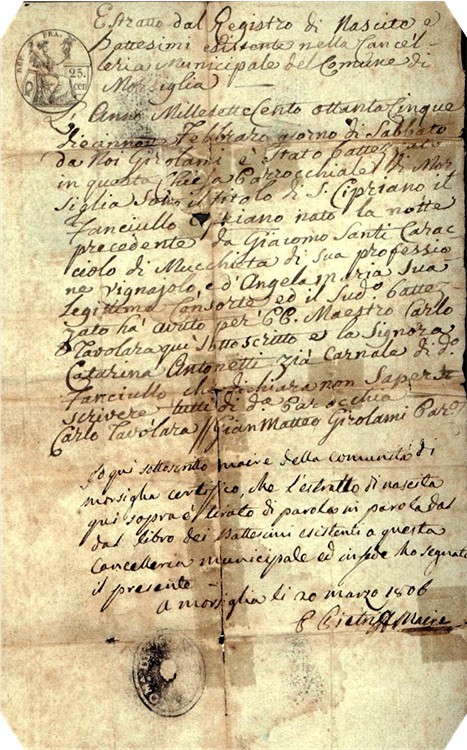 REP. FRA.
25. cen
Estratto dal Registro di Nascite e
Battesimi esistente nella Cancel-
leria Municipale del Comune di
Morsiglia
L'Anno Millesette Cento ottanta Cinque
dieannove Febbraro giorno di Sabbato
da Noi Girolami è stato battezzato
in questa Chiesa Parrocchiale di Mor
siglia sotto il titolo di S. Cipriano il
fanciullo Cipriano nato la notte
precedente da Giacomo Santi Carac
ciolo di Mucchieta di sua professio
ne vignajolo, e d'Angela Maria sua
legittima Consorte ed il Sudº battez
zato ha avuto per CC. Maestro Carlo
Tavolara qui sottoscritto e la Signora
Catarina Antonetti zia Carnale di dº
fanciullo che dichiara non saper
scrivere tutti di dª Parocchia
Carlo Tavolara // Gian Matteo Girolami
Io qui sottoscritto maire della comunità di
morsiglia certifico, che l'estratto di nascita
qui sopra è tirato di parola in parola dal
dal libro dei Battesimi esistenti a questa
cancelleria municipale ed in fede ho segnato
il presente
a morsiglia li 20 marzo 1806
Pietri Maire